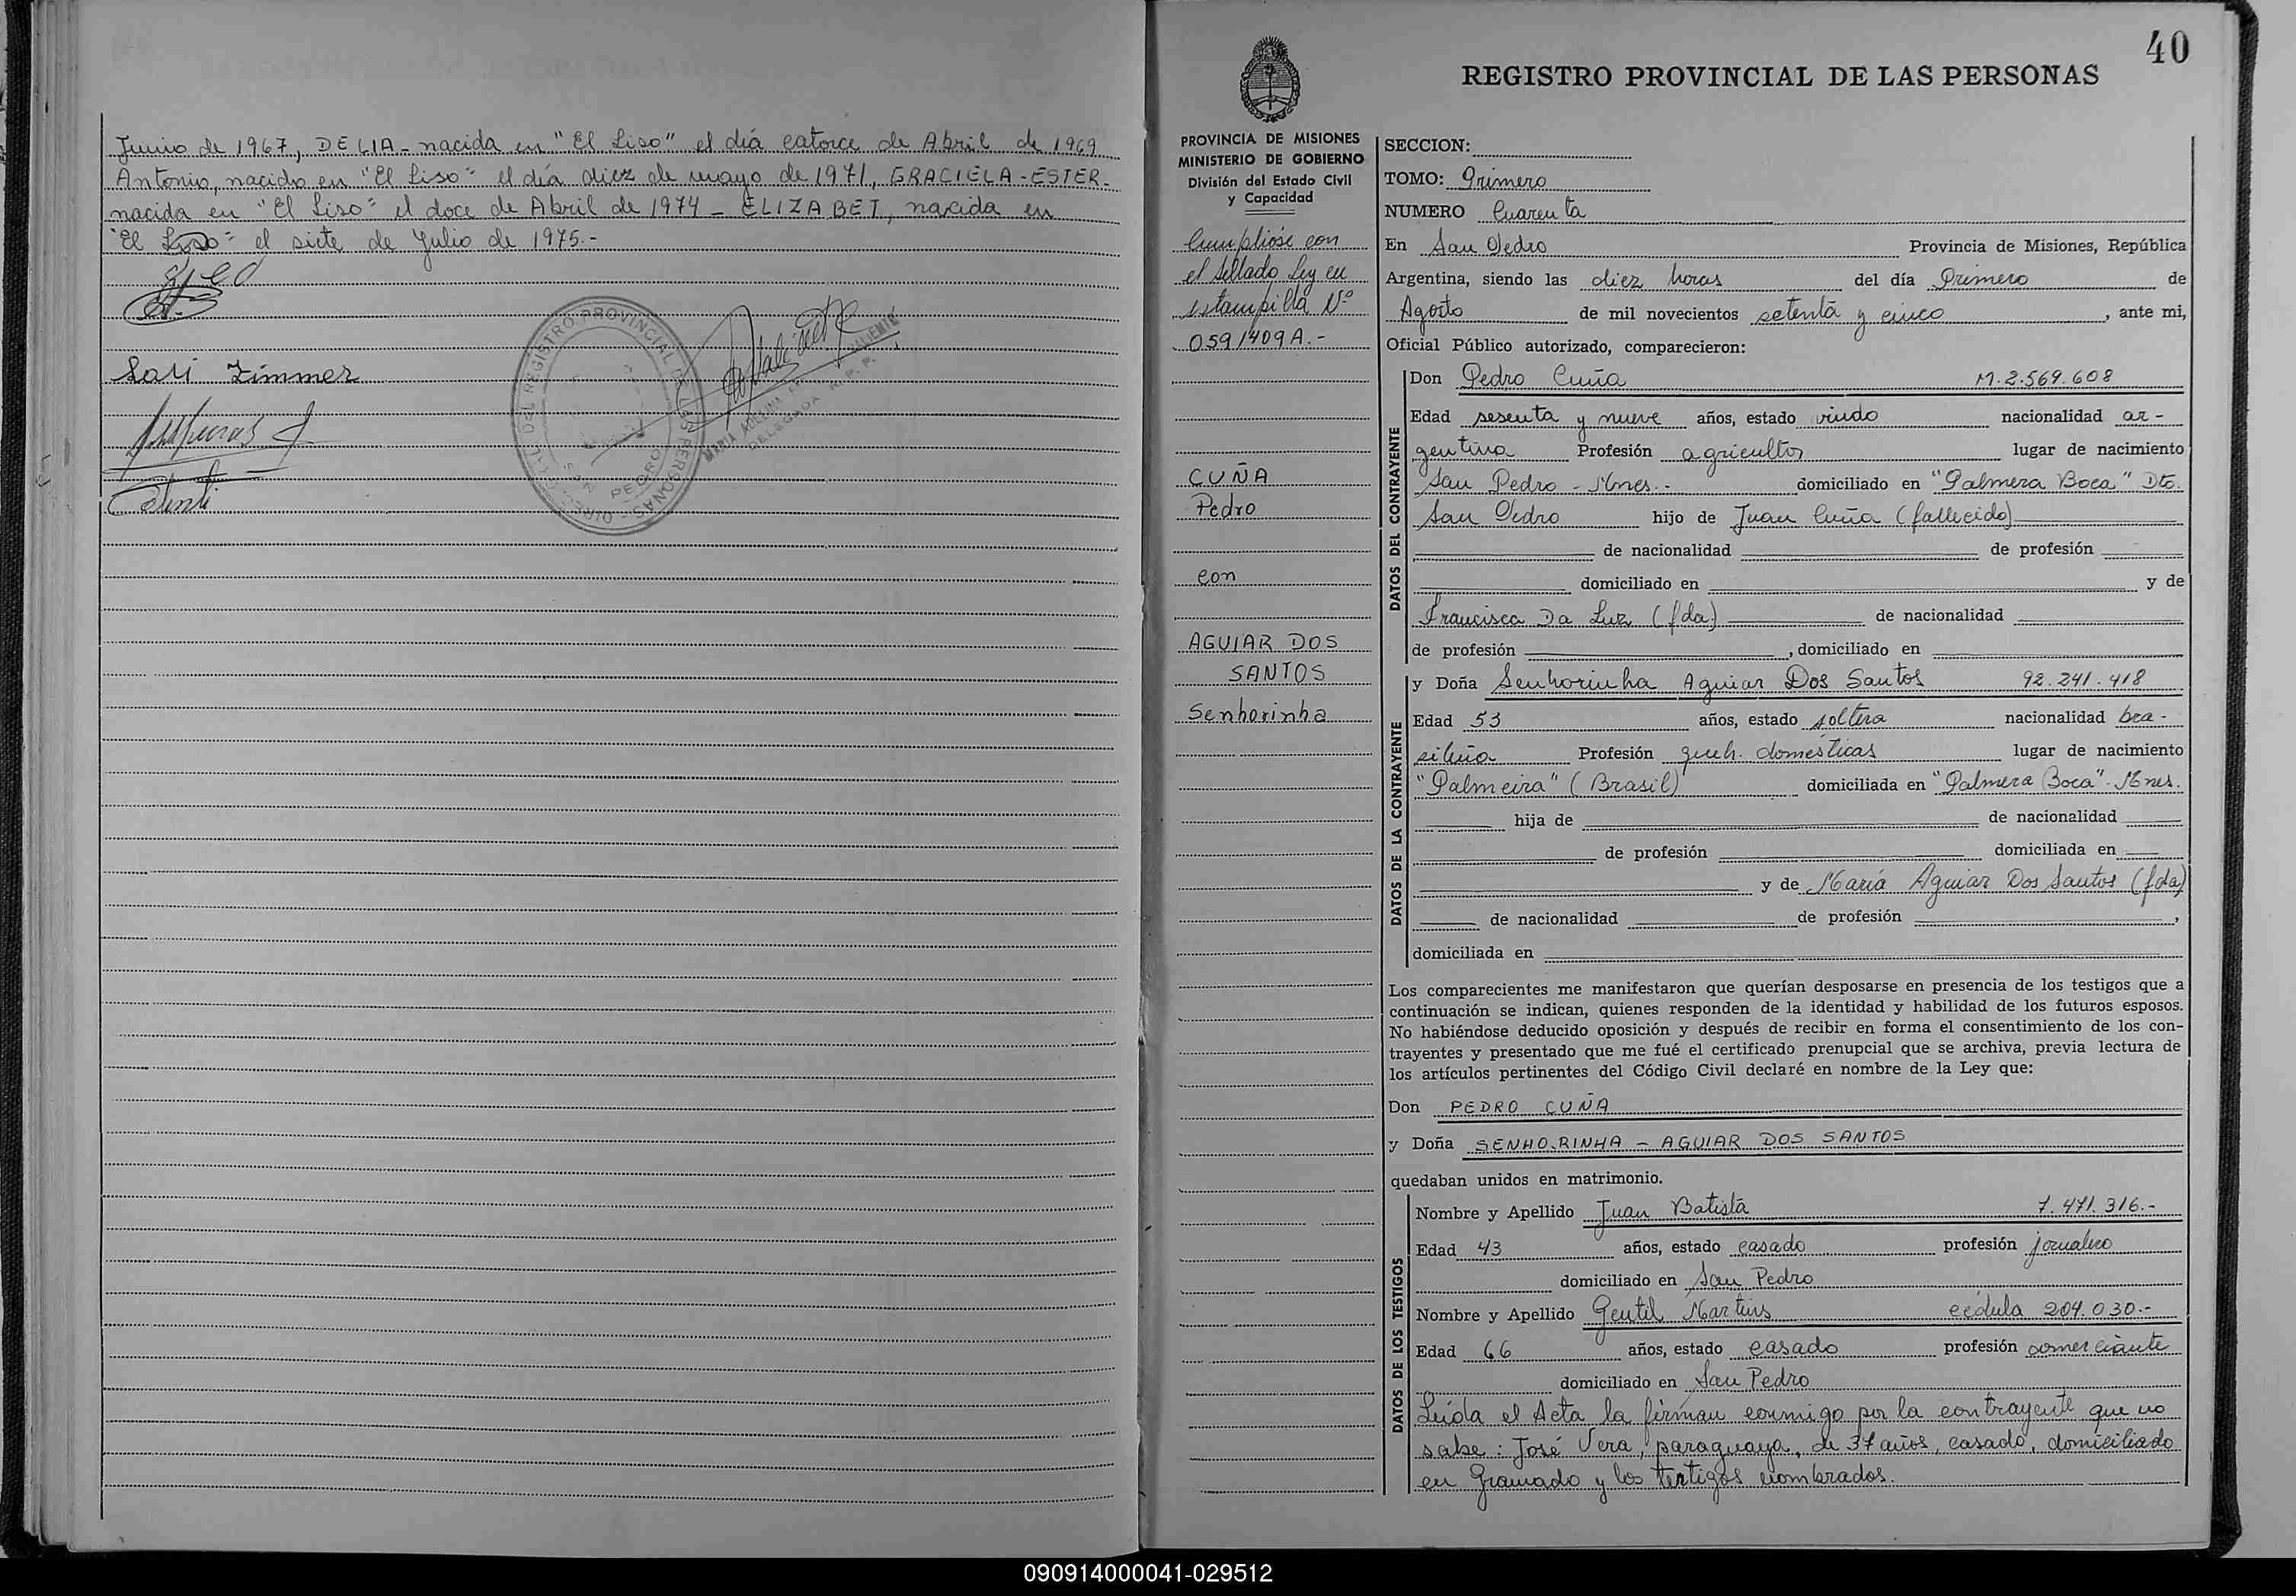 Junio de 1967, DELIA - nacida en "El Liso" el día catorce de Abril de 1969
Antonio, nacido en "El Liso" el día diez de mayo de 1971, GRACIELA - ESTER -
nacida en "El Liso" el doce de Abril de 1974 - ELIZABET, nacida en
"El Liso" el siete de Julio de 1975.-
Lali Zimmer
REGISTRO PROVINCIAL DE LAS PERSONAS
SAN PEDRO
40
REGISTRO PROVINCIAL DE LAS PERSONAS
PROVINCIA DE MISIONES
MINISTERIO DE GOBIERNO
División del Estado Civil
y Capacidad
Cumplióse con
el sellado Ley en
estampilla Nº
0591409A.-
CUÑA
Pedro
con
AGUIAR DOS
SANTOS
Senhorinha
SECCION:
TOMO: Primero
NUMERO Cuarenta
En San Pedro Provincia de Misiones, República
Argentina, siendo las diez horas del día Primero de
Agosto de mil novecientos setenta y cinco, ante mi,
Oficial Público autorizado, comparecieron:
DATOS DEL CONTRAYENTE
Don Pedro Cuña M. 2.569.608
Edad sesenta y nueve años, estado viudo nacionalidad ar-
gentina Profesión agricultor lugar de nacimiento
San Pedro - Mnes.- domiciliado en "Palmera Boca" Dto.
San Pedro hijo de Juan Cuña (fallecido)
de nacionalidad de profesión
domiciliado en y de
Francisca Da Luz (fda) de nacionalidad
de profesión , domiciliado en
DATOS DE LA CONTRAYENTE
y Doña Senhorinha Aguiar Dos Santos 92.241.418
Edad 53 años, estado soltera nacionalidad bra-
sileña Profesión queh. domésticas lugar de nacimiento
"Palmeira" (Brasil) domiciliada en "Palmera Boca"- Mnes.
hija de de nacionalidad
de profesión domiciliada en
y de María Aguiar Dos Santos (fda)
de nacionalidad de profesión ,
domiciliada en
Los comparecientes me manifestaron que querían desposarse en presencia de los testigos que a
continuación se indican, quienes responden de la identidad y habilidad de los futuros esposos.
No habiéndose deducido oposición y después de recibir en forma el consentimiento de los con-
trayentes y presentado que me fué el certificado prenupcial que se archiva, previa lectura de
los artículos pertinentes del Código Civil declaré en nombre de la Ley que:
Don PEDRO CUÑA
y Doña SENHORINHA - AGUIAR DOS SANTOS
quedaban unidos en matrimonio.
DATOS DE LOS TESTIGOS
Nombre y Apellido Juan Batista 7.471.316.-
Edad 43 años, estado casado profesión jornalero
domiciliado en San Pedro
Nombre y Apellido Gentil Martins cédula 204.030.-
Edad 66 años, estado casado profesión comerciante
domiciliado en San Pedro
Leída el Acta la firman conmigo por la contrayente que no
sabe: José Vera, paraguayo, de 37 años, casado, domiciliado
en Gramado y los testigos nombrados.
090914000041-029512